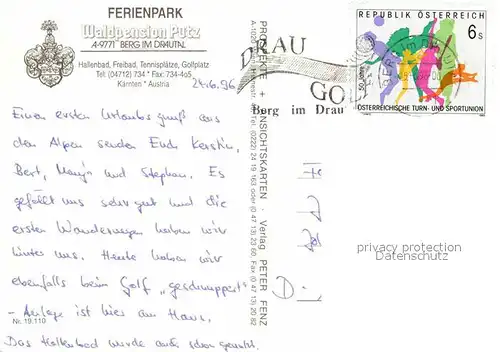 FERIENPARK
Waldpension Putz
A-9771 BERG IM DRAUTAL
Hallenbad, Freibad, Tennisplätze, Golfplatz
Tel (04712) 734 * Fax: 734-405
Kärnten * Austria
24.6.96
Einen ersten Urlaubsgruß aus
den Alpen senden Euch Kerstin,
Bert, Manja und Stephan. Es
gefällt uns sehr gut und die
ersten Wanderungen haben wir
hinter uns. Heute haben wir
ebenfalls beim Golf „geschnuppert"
- Anlage ist hier am Haus.
Nr. 19.110
Das Hallenbad wurde auch schon genutzt.
ANSICHTSKARTEN · Verlag PETER FENZ
DRAU
GOL
Berg im Drau
REPUBLIK ÖSTERREICH
6 s
50 JAHRE
ÖSTERREICHISCHE TURN- UND SPORTUNION
privacy protection
Datenschutz